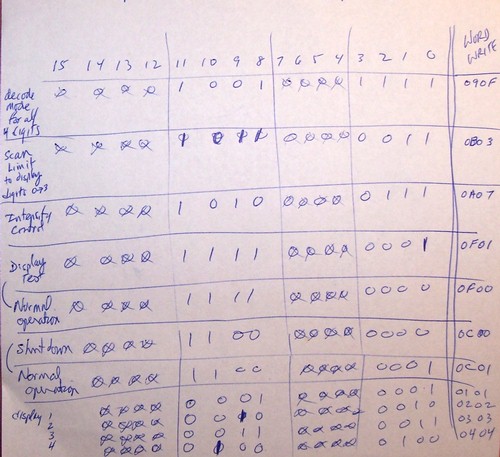 WORD WRITE
15 14 13 12 11 10 9 8 7 6 5 4 3 2 1 0
decode mode for all 4 digits Ø Ø Ø Ø 1 0 0 1 Ø Ø Ø Ø 1 1 1 1 090F
Scan Limit to display digits 0→3 Ø Ø Ø Ø 1 0 1 1 Ø Ø Ø Ø 0 0 1 1 0B03
Intensity Control Ø Ø Ø Ø 1 0 1 0 Ø Ø Ø Ø 0 1 1 1 0A07
Display Test Ø Ø Ø Ø 1 1 1 1 Ø Ø Ø Ø 0 0 0 1 0F01
Normal operation Ø Ø Ø Ø 1 1 1 1 Ø Ø Ø Ø 0 0 0 0 0F00
Shutdown Ø Ø Ø Ø 1 1 0 0 Ø Ø Ø Ø 0 0 0 0 0C00
Normal operation Ø Ø Ø Ø 1 1 0 0 Ø Ø Ø Ø 0 0 0 1 0C01
display 1 Ø Ø Ø Ø 0 0 0 1 Ø Ø Ø Ø 0 0 0 1 0101
2 Ø Ø Ø Ø 0 0 1 0 Ø Ø Ø Ø 0 0 1 0 0202
3 Ø Ø Ø Ø 0 0 1 1 Ø Ø Ø Ø 0 0 1 1 0303
4 Ø Ø Ø Ø 0 1 0 0 Ø Ø Ø Ø 0 1 0 0 0404